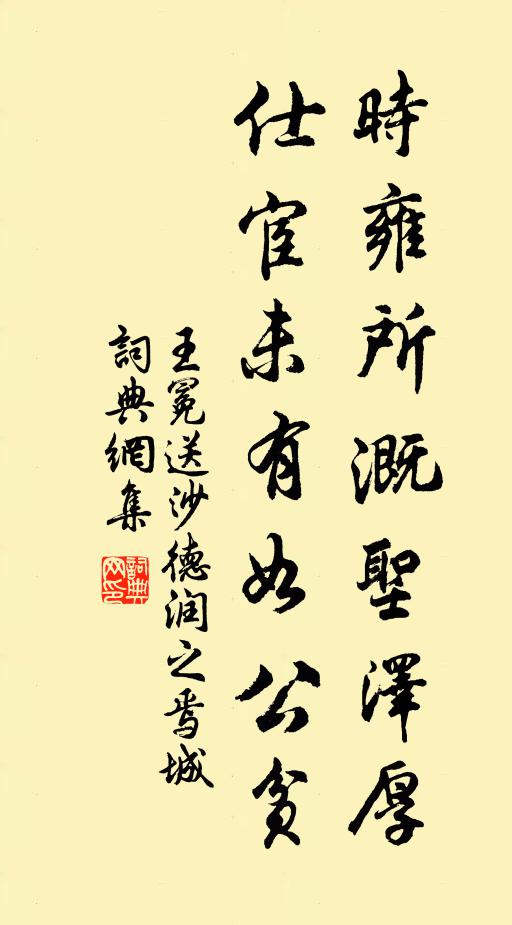 時雍所溉聖澤厚
仕宦未有如公貧
王冕送沙德润之焉城
詞典網集
詞典网印